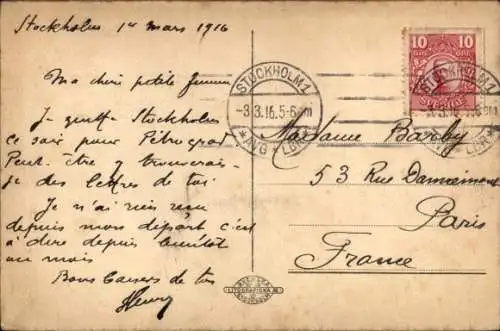 Stockholm 1er mars 1916
Ma chère petite femme
Je quitte Stockholm
ce soir pour Pétrograd
Peut-être y trouverai-
je des lettres de toi
Je n'ai rien reçu
depuis mon départ c'est
à dire depuis bientôt
un mois
Bons baisers de ton
Henry
10 10
SVERIGE
STOCKHOLM 1
-3.3.16.5-6 em
*AVG * LBR*
STOCKHOLM 1
LBR
Madame Barby
53 Rue Damrémont
Paris
France